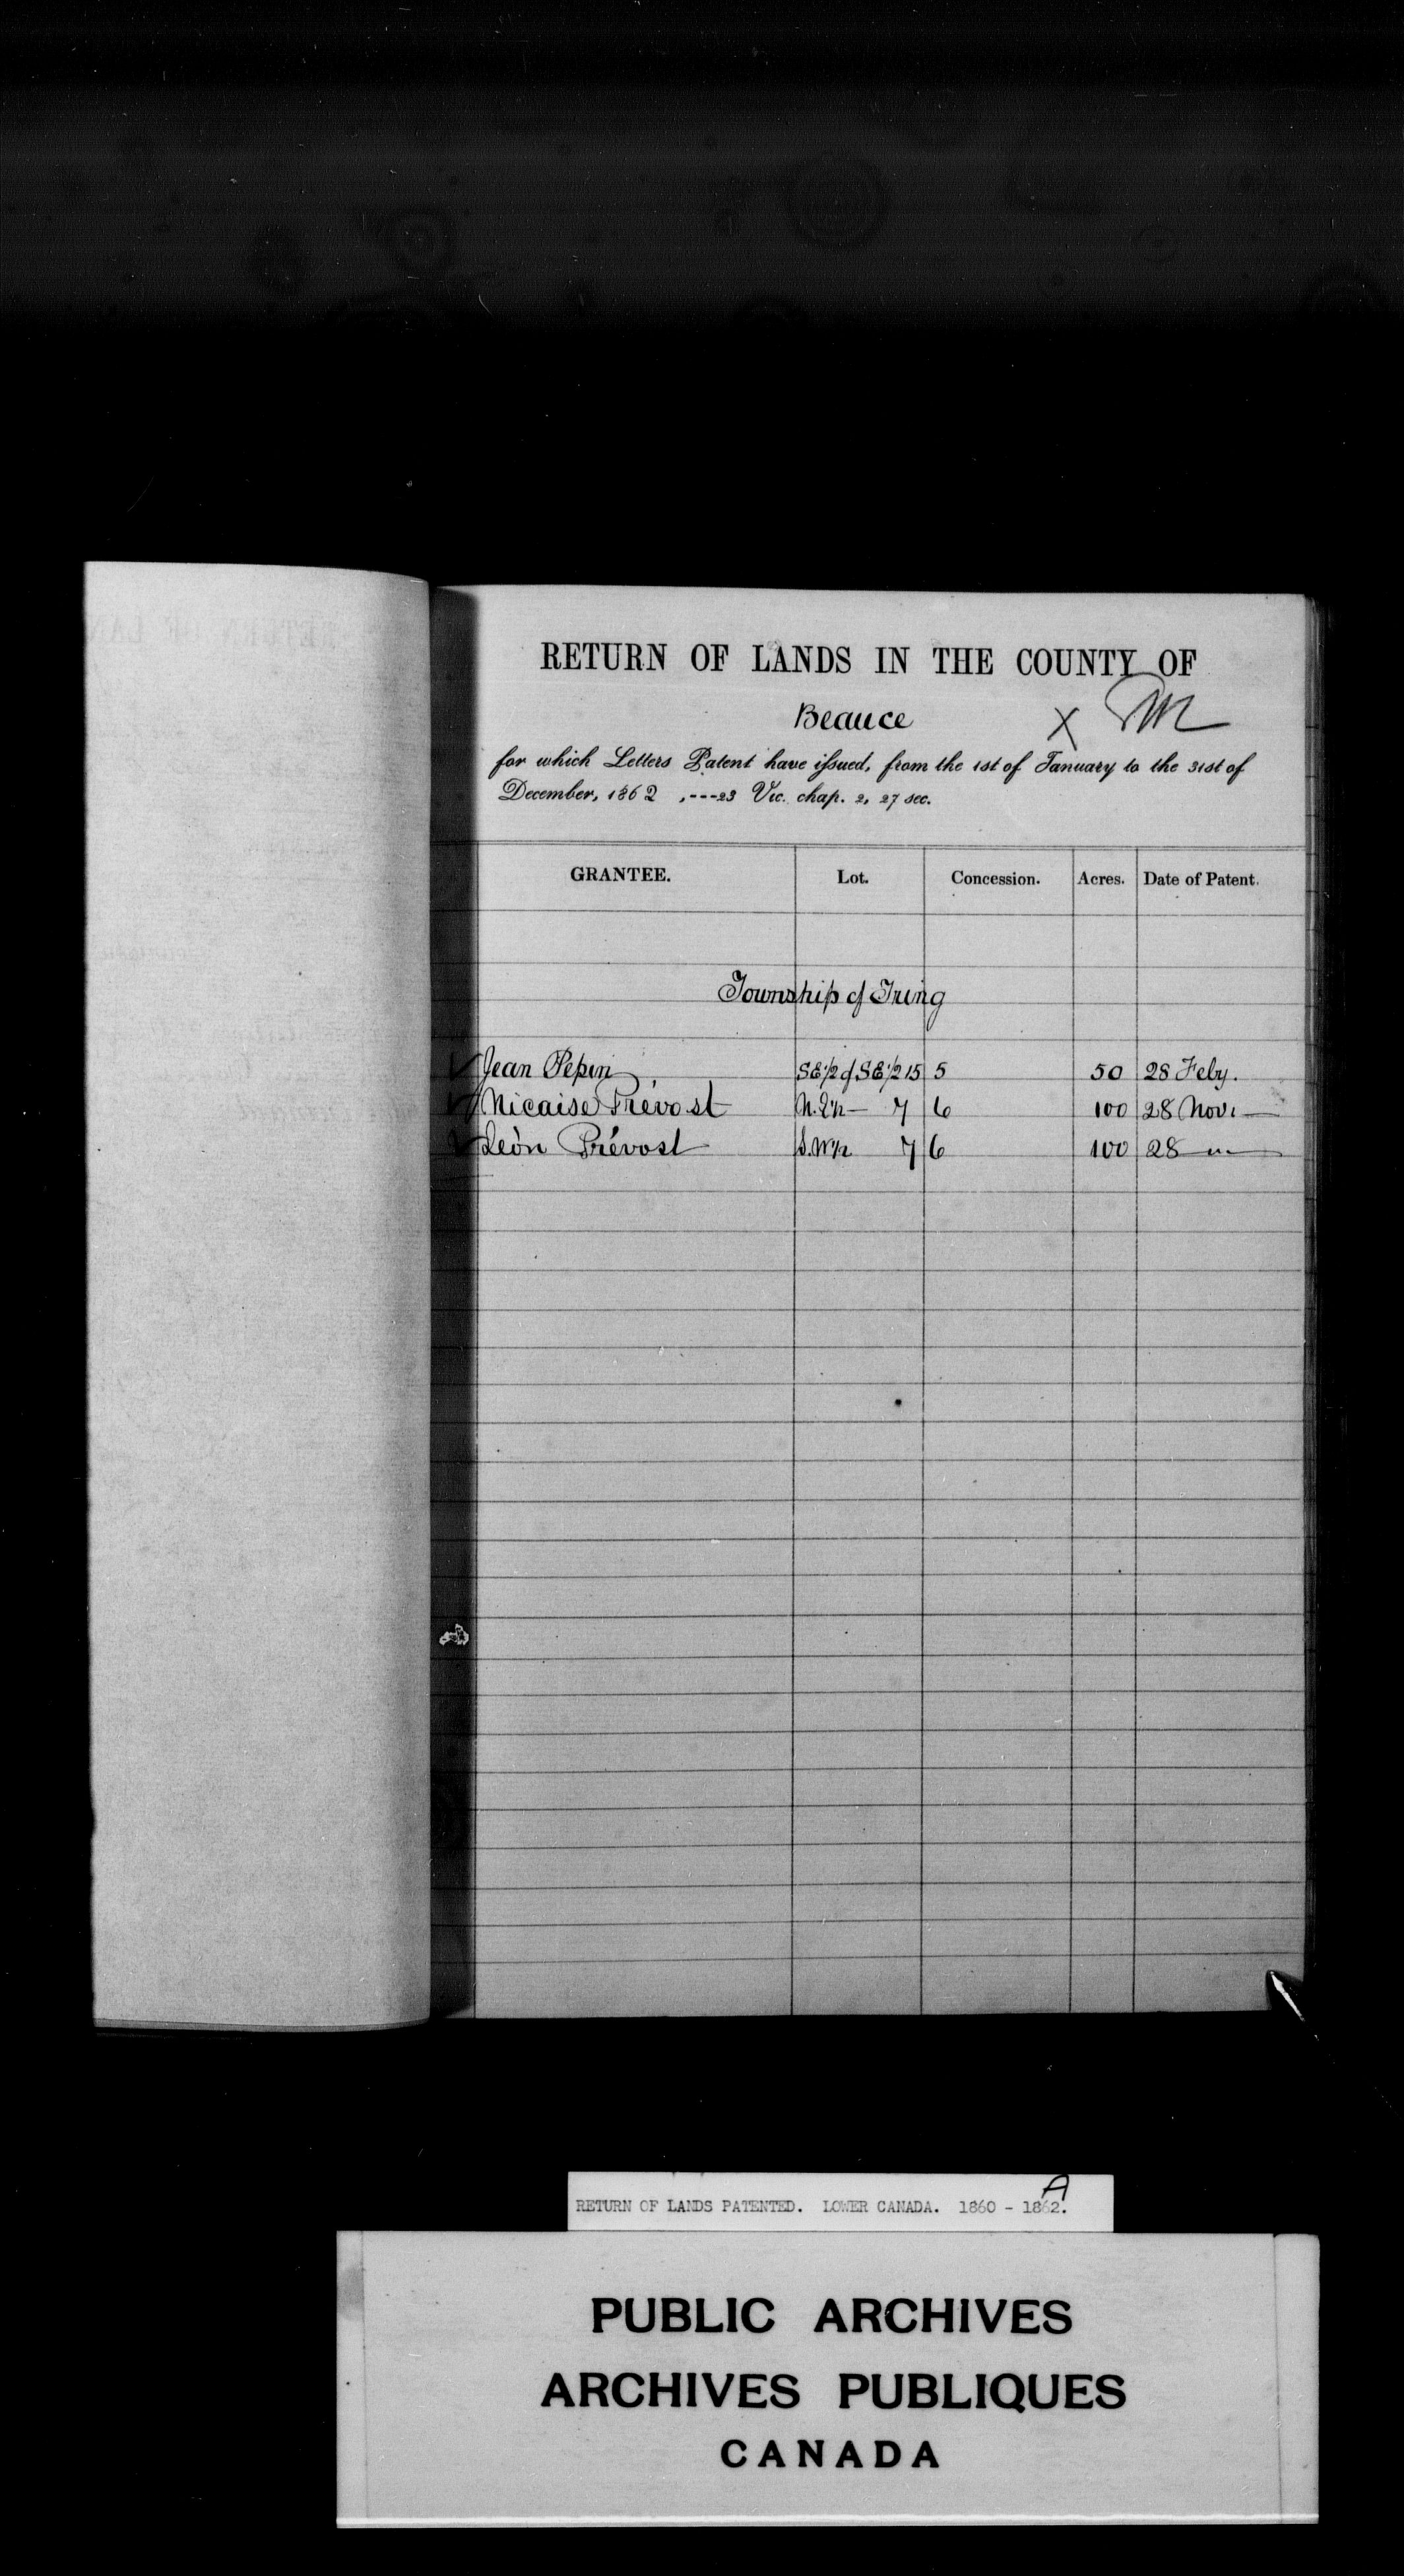 RETURN OF LANDS IN THE COUNTY OF
Beauce X
for which Letters Patent have issued, from the 1st of January to the 31st of
December, 1862 ,---23 Vic. chap. 2, 27 sec.
GRANTEE. Lot. Concession. Acres. Date of Patent.
Township of Tring
Jean Pepin SE 1/2 of SE 1/2 15 5 50 28 Feby.
Nicaise Prévost N.E 1/2 — 7 6 100 28 Nov. —
Léon Prévost S.W 1/2 7 6 100 28 — " —
RETURN OF LANDS PATENTED. LOWER CANADA. 1860 - 1862.
A
PUBLIC ARCHIVES
ARCHIVES PUBLIQUES
CANADA